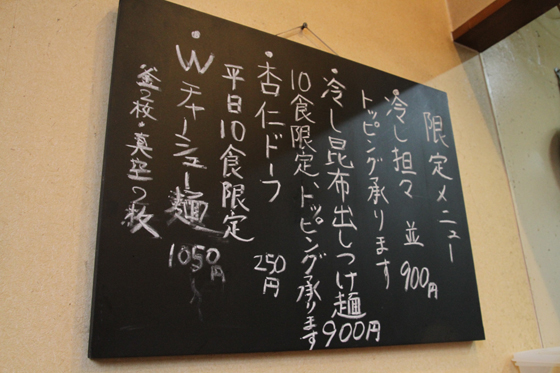 限定メニュー
・冷し担々 並 900円
トッピング承ります
・冷し昆布出しつけ麺 900円
10食限定、トッピング承ります
・杏仁ドーフ 250円
平日10食限定
・Wチャーシュー麺 1050円
釜2枚・真空2枚